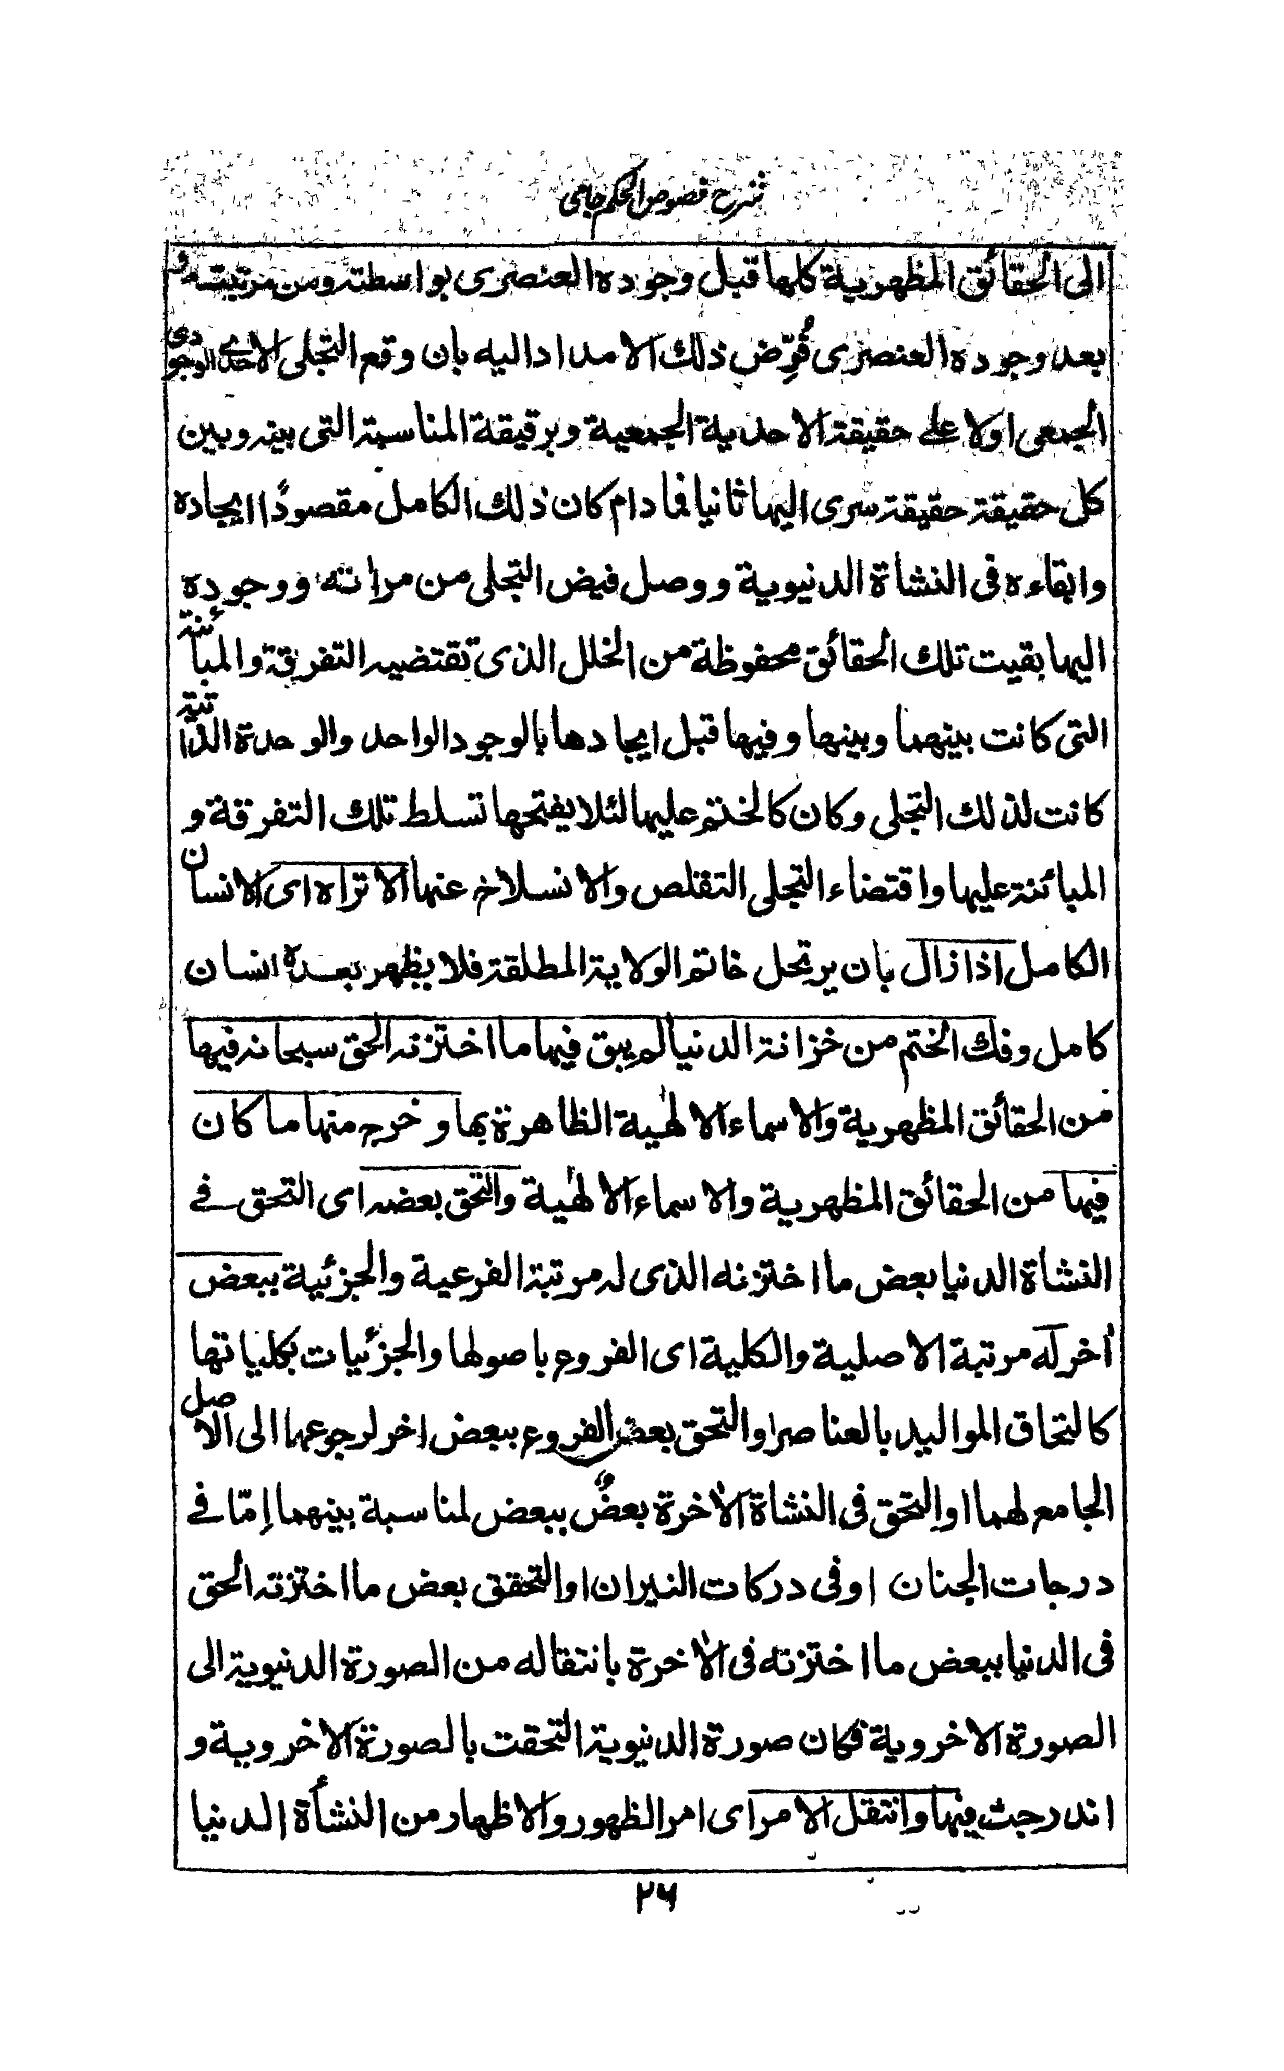 شرح فصوص الحكم جامى
الى الحقائق المظهرية كلها قبل وجوده العنصرى بواسطته ومن مرتبته و
بعد وجوده العنصرى فُرِّض ذلك الامداد اليه بان وقع التجلى الاحدى الوجودى
الجمعى اولا على حقيقة الاحدية الجمعية وبرقيقة المناسبة التى بينه وبين
كل حقيقة حقيقة سرى اليها ثانيا فما دام كان ذلك الكامل مقصودًا ايجاده
وابقاءه فى النشاة الدنيوية ووصل فيض التجلى من مراته ووجوده
اليها بقيت تلك الحقائق محفوظة من الخلل الذى تقتضيه التفرقة والمبائنة
التى كانت بينهما وبينها وفيها قبل ايجادها بالوجود الواحد والوحدة الذاتية
كانت لذلك التجلى وكان كالختم عليها لئلا يفتحها تسلط تلك التفرقة و
المبائنة عليها واقتضاء التجلى التقلص والانسلاخ عنها الا تراه اى الانسان
الكامل اذا زال بان يرتحل خاتم الولاية المطلقة فلا يظهر بعده انسان
كامل وفك الختم من خزانة الدنيا لم يبق فيها ما اختزنه الحق سبحانه فيها
من الحقائق المظهرية والاسماء الالٰهية الظاهرة بها وخرج منها ما كان
فيها من الحقائق المظهرية والاسماء الالٰهية والتحق بعضه اى التحق فے
النشاة الدنيا بعض ما اختزنه الذى له مرتبة الفرعية والجزئية ببعض
اُخر له مرتبة الاصلية والكلية اى الفروع باصولها والجزئيات بكلياتها
كالتحاق المواليد بالعناصر او التحق بعض الفروع ببعض اخر لرجوعهما الى الاصل
الجامع لهما او التحق فى النشاة الاخرة بعضٌ ببعض لمناسبة بينهما اِمّا فے
درجات الجنان او فى دركات النيران او التحقق بعض ما اختزنه الحق
فى الدنيا ببعض ما اختزنه فى الاخرة بانتقاله من الصورة الدنيوية الى
الصورة الاخروية فكان صورة الدنيوية التحقت بالصورة الاخروية و
اندرجت فيها وانتقل الامر اى امر الظهور والاظهار من النشأة الدنيا
٢٦